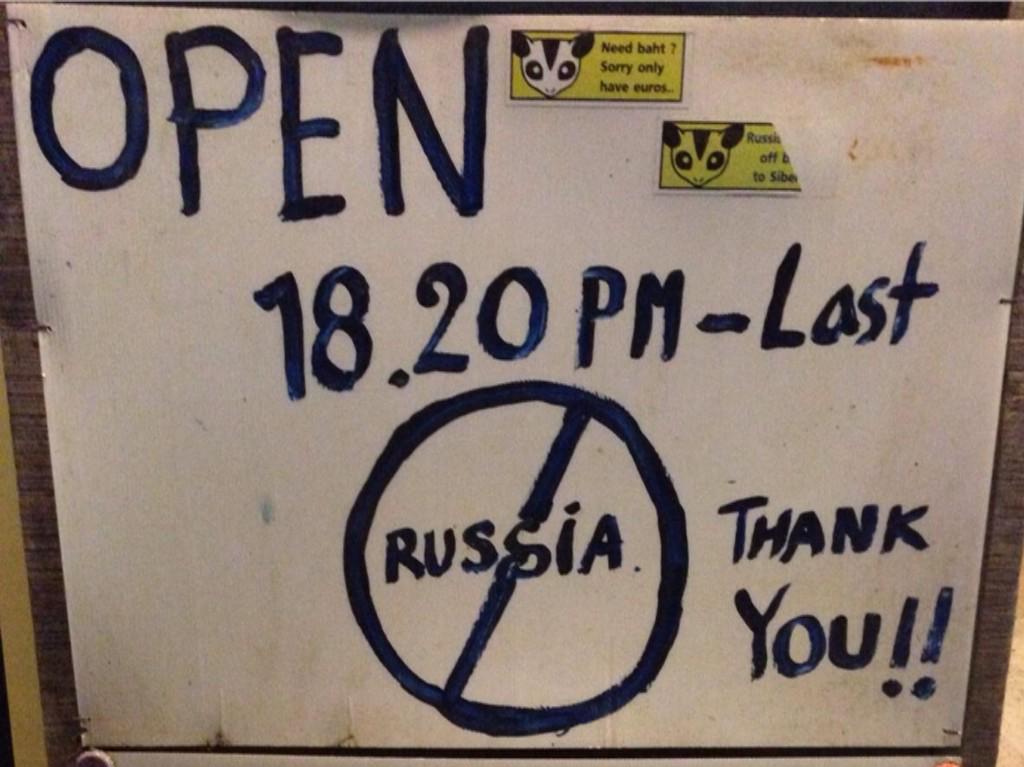 OPEN
Need baht ?
Sorry only
have euros..
off
to
18.20 PM - Last
RUSSiA.
THANK
YOU!!